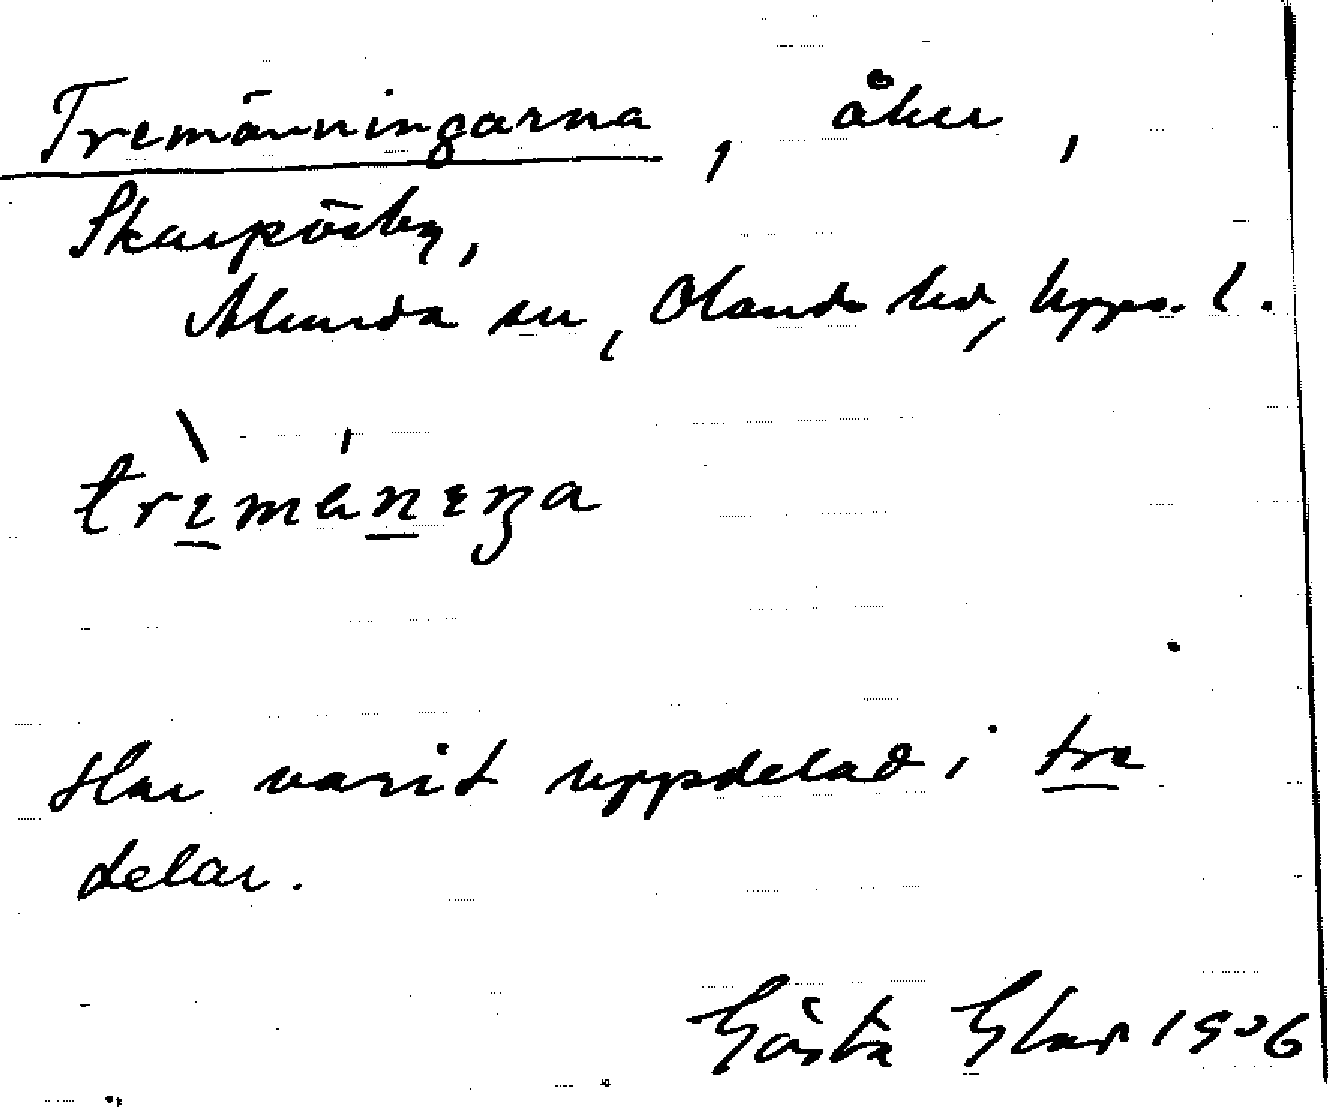 Tremänningarna, åker,
Skarpösby,
Alunda sn, Olands hd, Upps. l.
trɩmänɩŋa
Har varit uppdelad i tre
delar.
Gösta Glad 1926